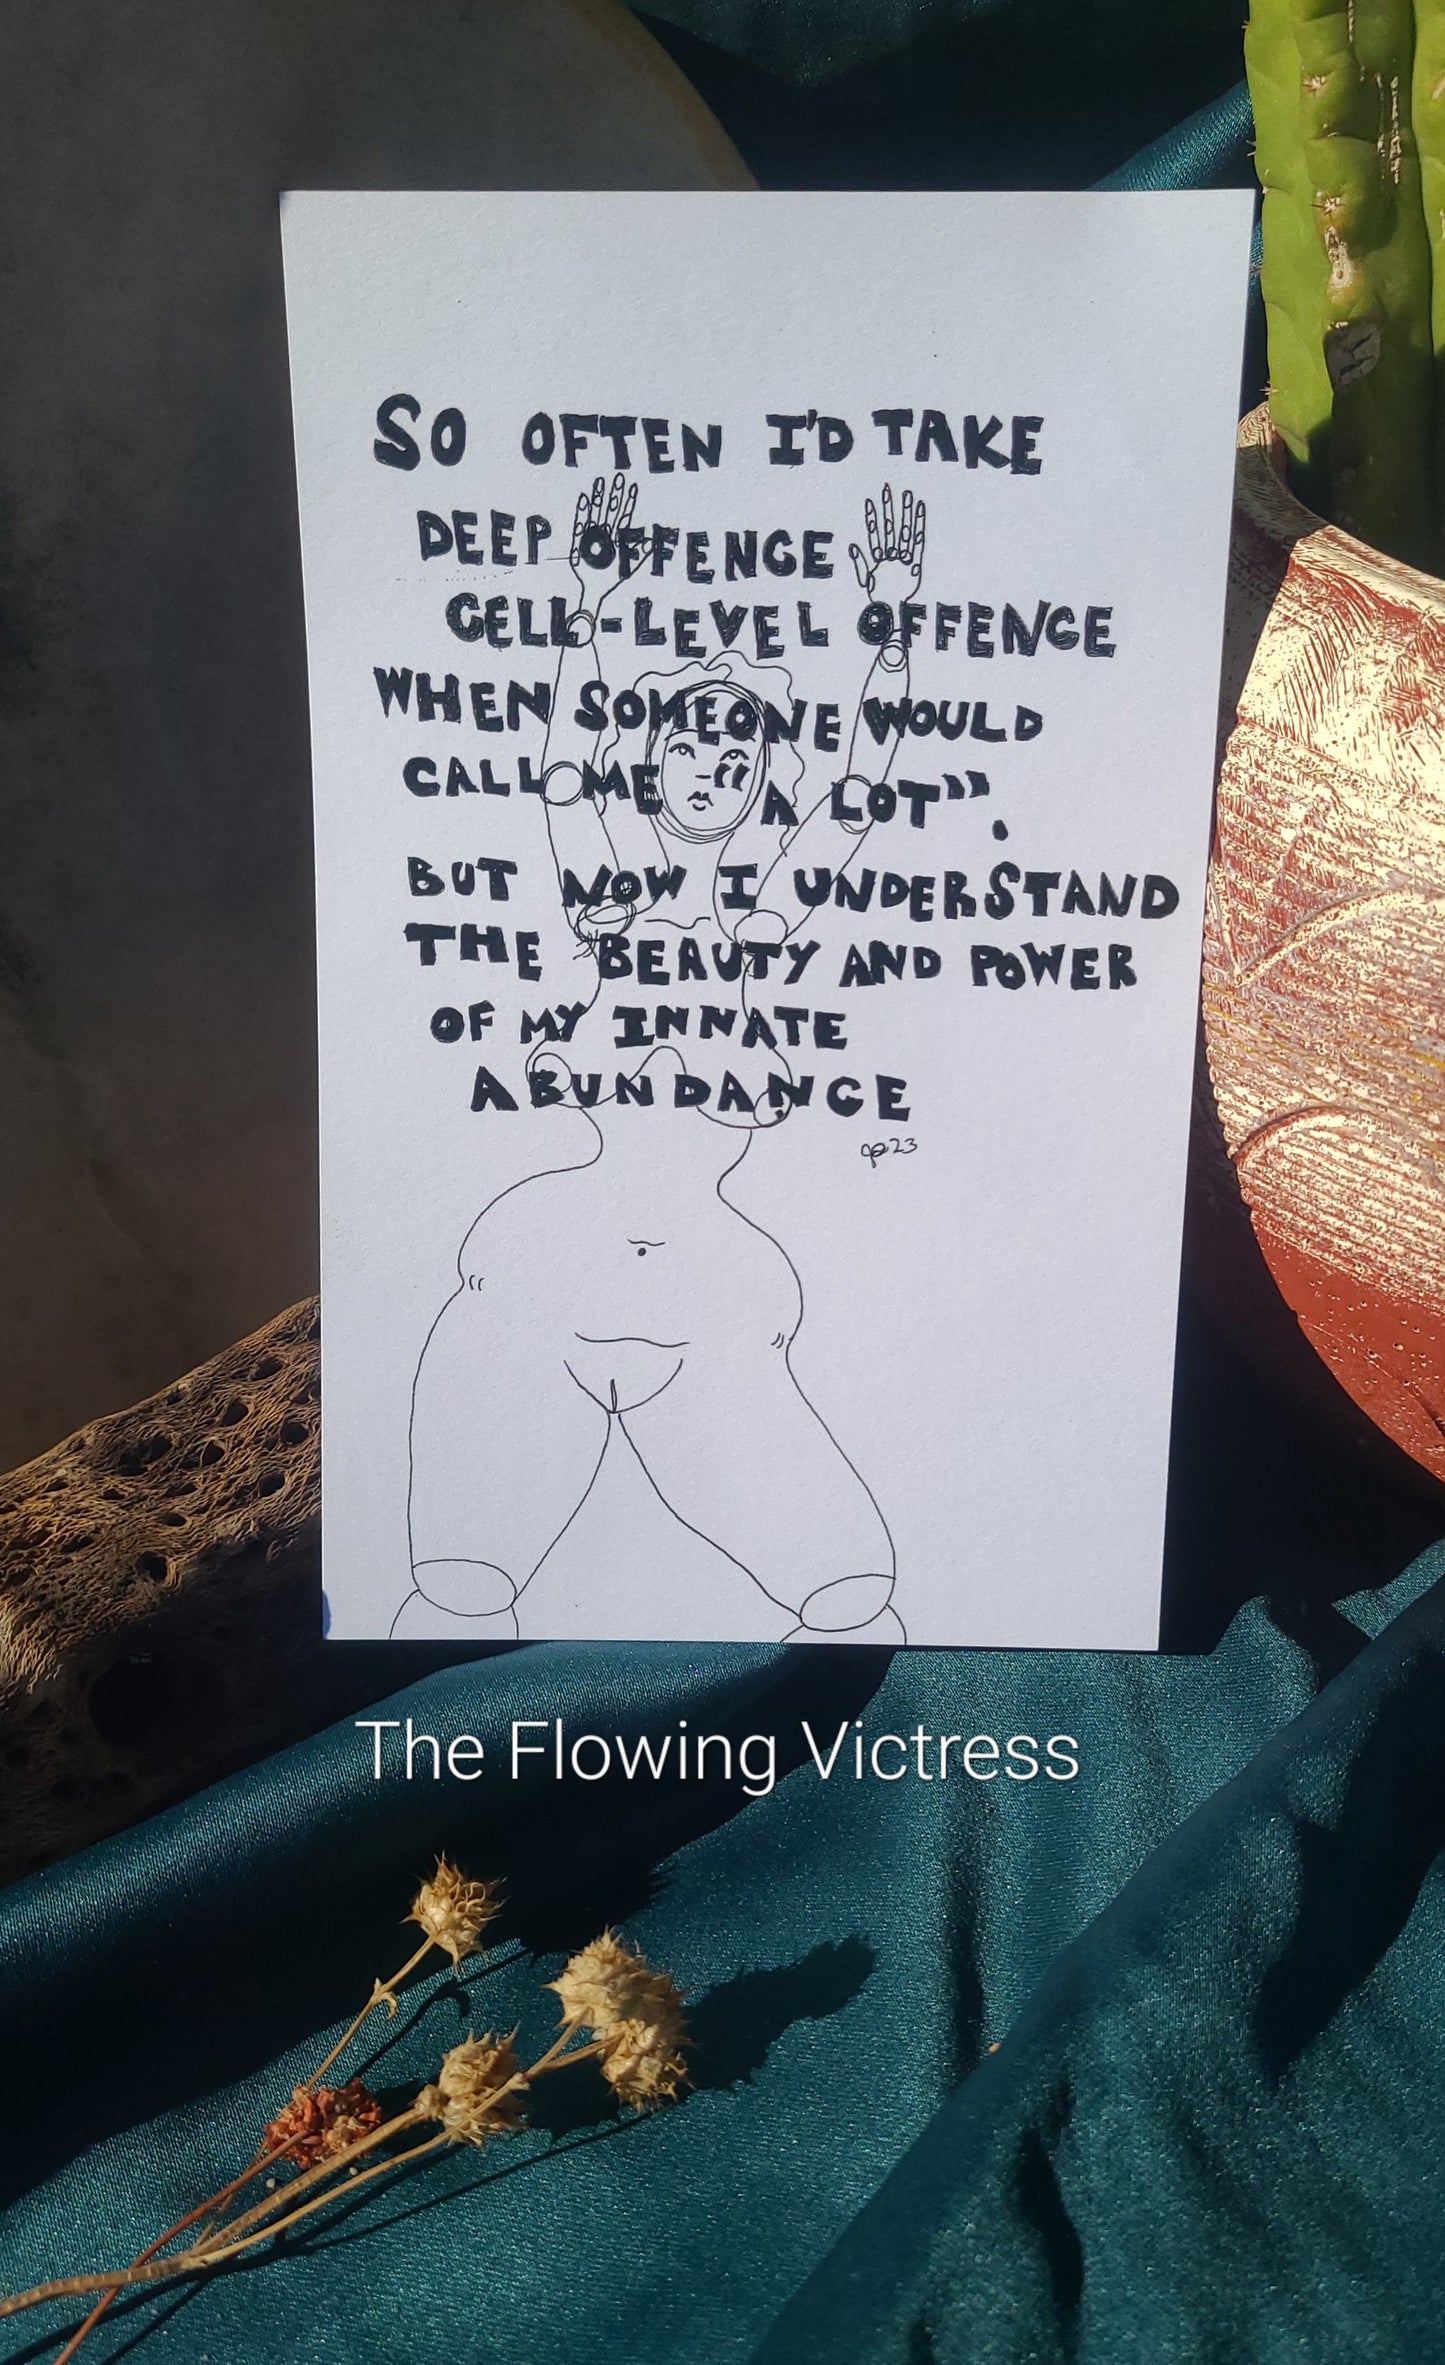 SO OFTEN I'D TAKE
DEEP OFFENCE
CELL-LEVEL OFFENCE
WHEN SOMEONE WOULD
CALL ME "A LOT".
BUT NOW I UNDERSTAND
THE BEAUTY AND POWER
OF MY INNATE
ABUNDANCE
23
The Flowing Victress